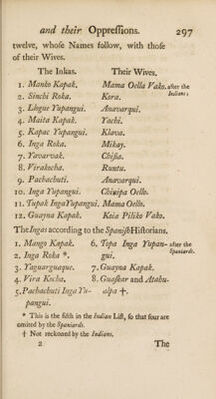 and their Oppreſſions. 297
twelve, whoſe Names follow, with thoſe
of their Wives.
The Inkas. Their Wives.
1. Manko Kapak. Mama Oella Vako. after the Indians;
2. Sinchi Roka. Kora.
3. Lhque Yupangui. Anavarqui.
4. Maita Kapak. Yachi.
5. Kapac Yupangui. Klava.
6. Inga Roka. Mikay.
7. Yavarvak. Chiſia.
8. Virakocha. Runtu.
9. Pachachuti. Anavarqui.
10. Inga Yupangui. Chisipa Oello.
11. Tupak IngaYupangui. Mama Oello.
12. Guayna Kapak. Kaia Piliko Vako.
The Ingas according to the Spaniſh Hiſtorians.
1. Mango Kapak. 6. Topa Inga Yupan- after the Spaniards.
2. Inga Roka *. gui.
3. Yaguarguaque. 7. Guayna Kapak.
4. Vira Kocha. 8. Guaſkar and Atahu-
5. Pachachuti Inga Yu- alpa †.
pangui.
* This is the ſixth in the Indian Liſt, ſo that four are
omitted by the Spaniards.
† Not reckoned by the Indians.
2 The